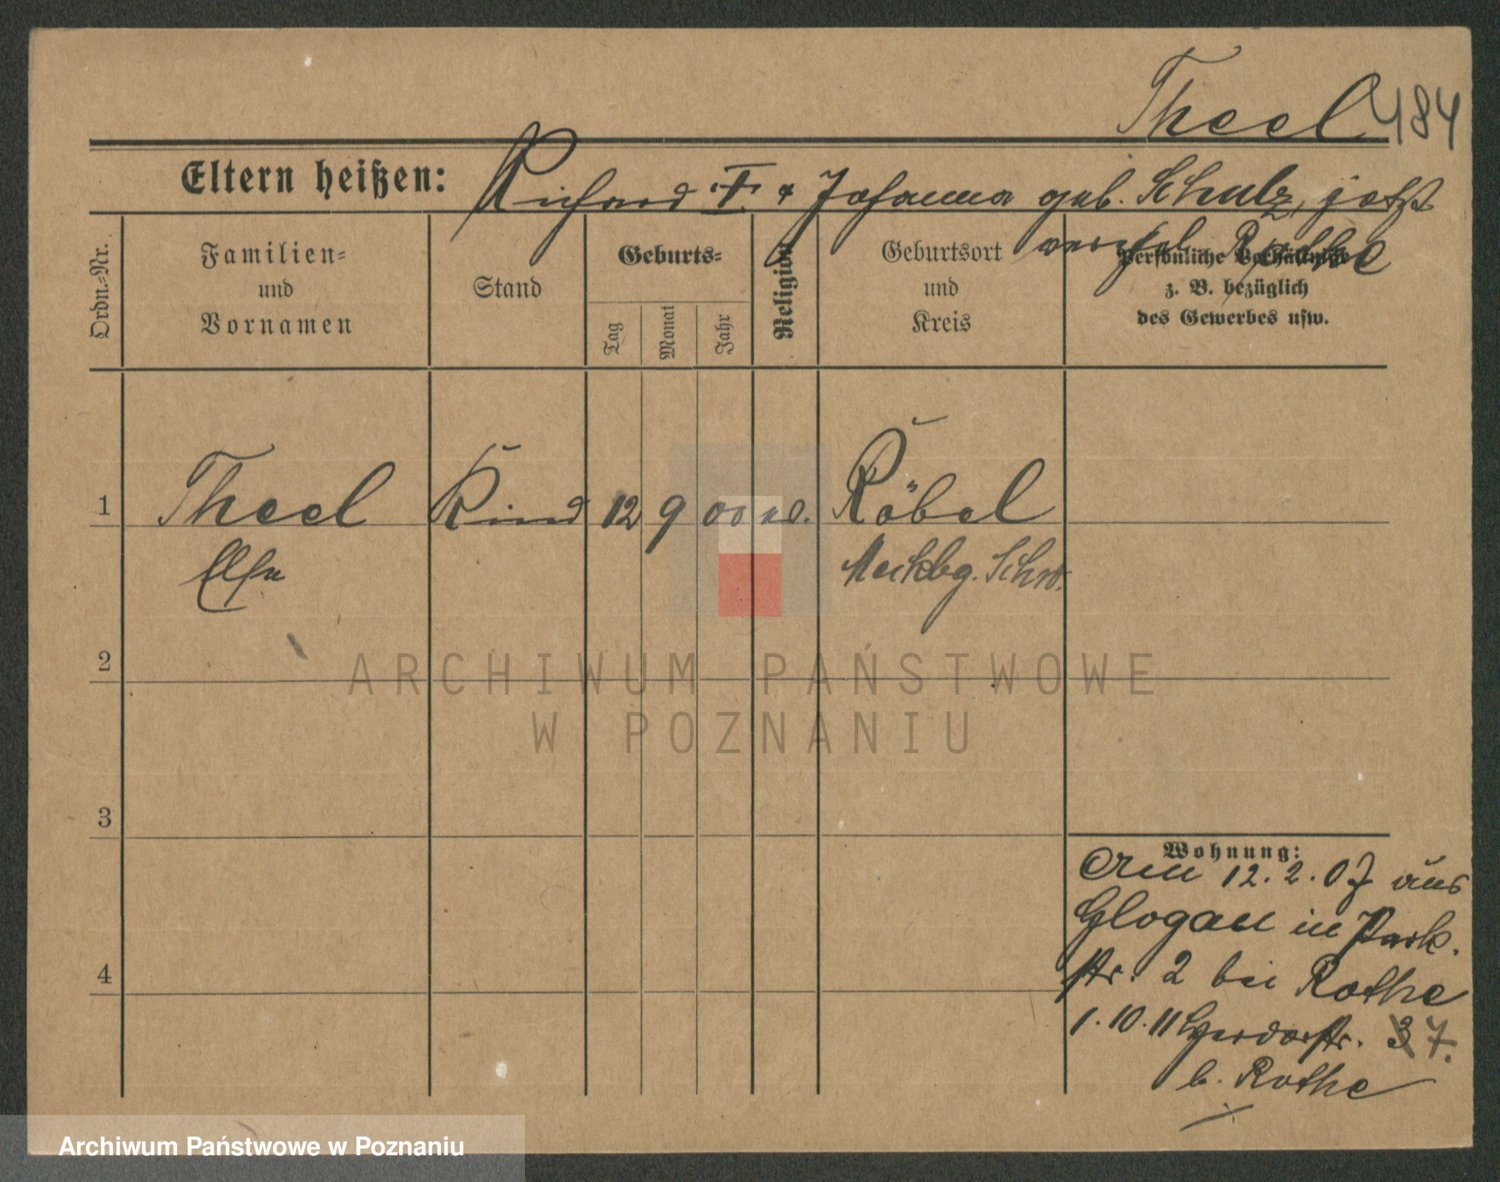 Theel 484
Eltern heißen: Richard T. & Johanna geb. Schulz, jetzt
Rothe
Ordn.-Nr.
Familien-
und
Vornamen
Stand
Geburts-
Tag
Monat
Jahr
Religion
Geburtsort
und
Kreis
Persönliche Verhältnisse
z. B. bezüglich
des Gewerbes usw.
1 Theel Kind 12 9 00 Röbel
Else Meckbg. Schw.
2
ARCHIWUM PAŃSTWOWE
W POZNANIU
3
Wohnung:
Am 12.2.07 aus
Glogau in Park-
str. 2 bei Rothe
4
1.10.11 str. 3 7.
b. Rothe
Archiwum Państwowe w Poznaniu